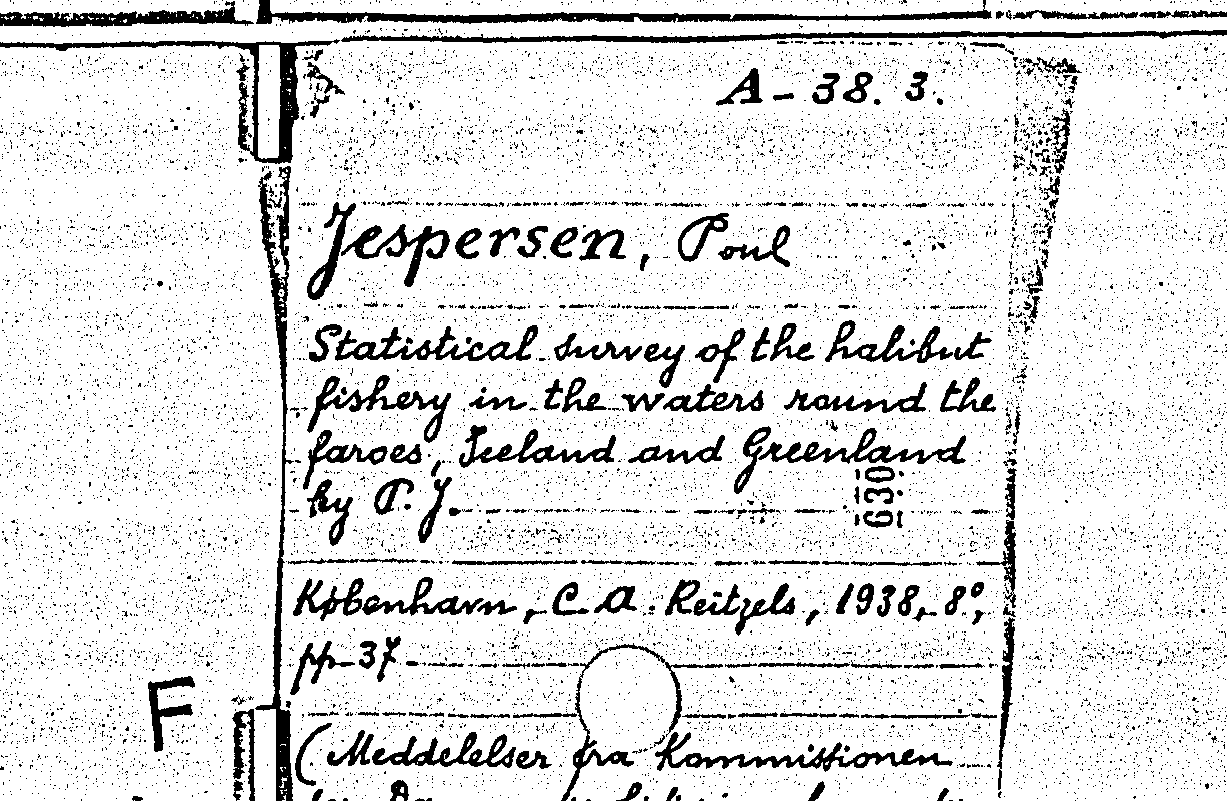 A - 38. 3.
Jespersen, Poul
Statistical survey of the halibut
fishery in the waters round the
faroes, Iceland and Greenland
by P. J.
630.
København, C. A. Reitzels, 1938, 8°,
pp. 37.
F
(Meddelelser fra Kommissionen